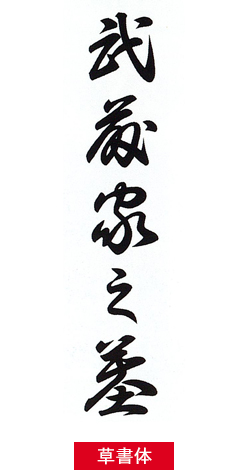 武藤家之墓
草書体